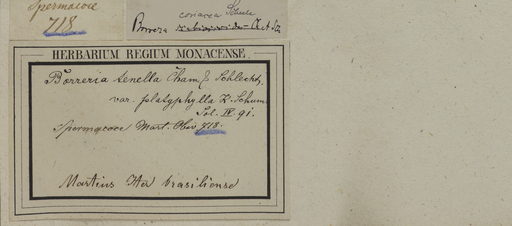 Spermacoce
718
coriacea
Borrera
HERBARIUM REGIUM MONACENSE
Borreria tenella Cham & Schlecht,
var. platyphylla K. Schum
Fol. IV. 91.
Spermacoce Mart. Obs 718.
Martius Iter brasiliense